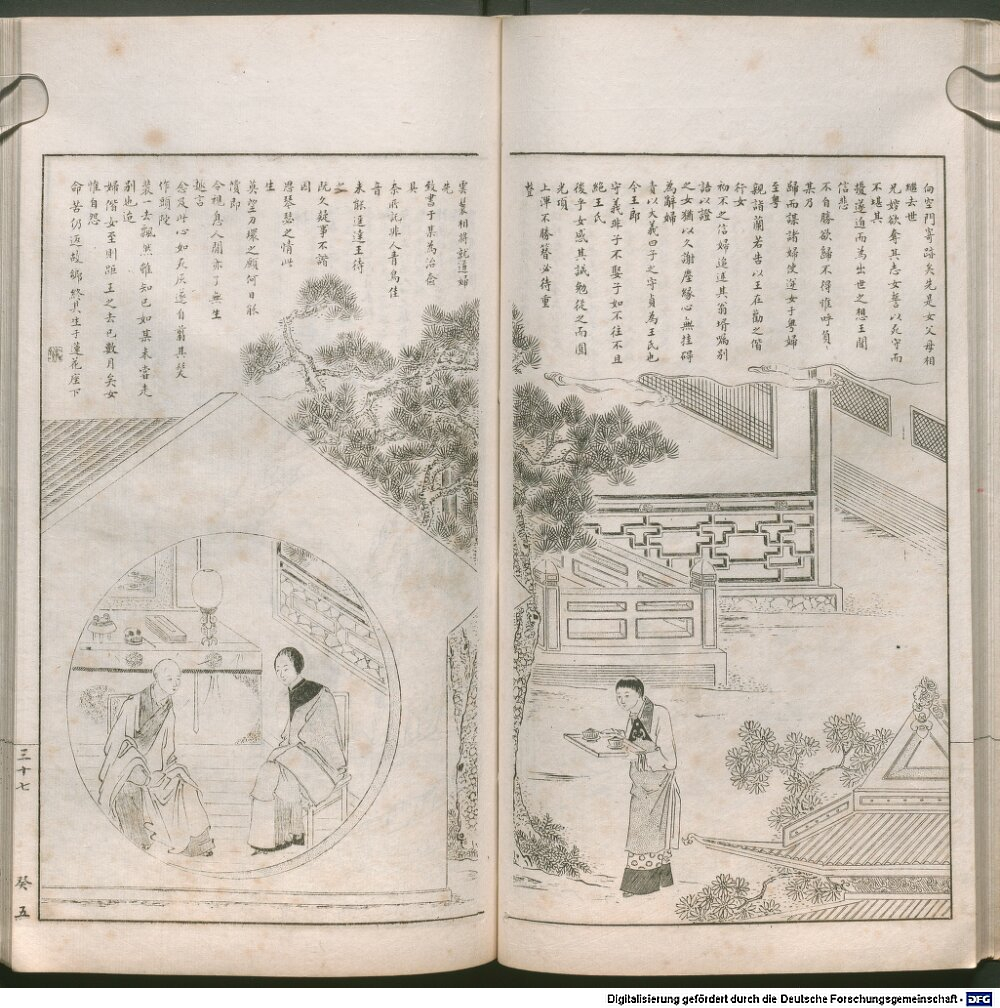 向空門寄跡矣先是女父母相
繼去世
兄嫂欲奪其志女誓以死守而
不堪其
擾遂遁而為出世之想王聞
信悲
不自勝欲歸不得惟呼負
某乃
歸而謀諸婦使運女于粵婦
至粵
親詣蘭若告以王在勸之偕
行女
初不之信婦追述其翁壻囑別
語以證
之女猶以久謝塵緣心無挂礙
為辭婦
責以大義曰子之守貞為王氏也
今王郎
守義非子不娶子如不往不且
絕王氏
後乎女感其誠勉從之而圓
光頂
上渾不勝簪必待重
整
雲鬟相將就道婦
先
致書于某為治奩
具
奈所託非人青鳥佳
音
未能通達王待
之
既久疑事不諧
因
思琴瑟之情此
生
莫望刀環之願何日能
償即
令視息人間亦了無生
趣言
念及此心如死灰遂自薙其髮
作頭陀
裝一去飄然雖知己如某未嘗走
別也迨
婦偕女至則距王之去已數月矣女
惟自怨
命苦仍返故鄉終其生于蓮花座下
三十七
癸五
Digitalisierung gefördert durch die Deutsche Forschungsgemeinschaft - DFG